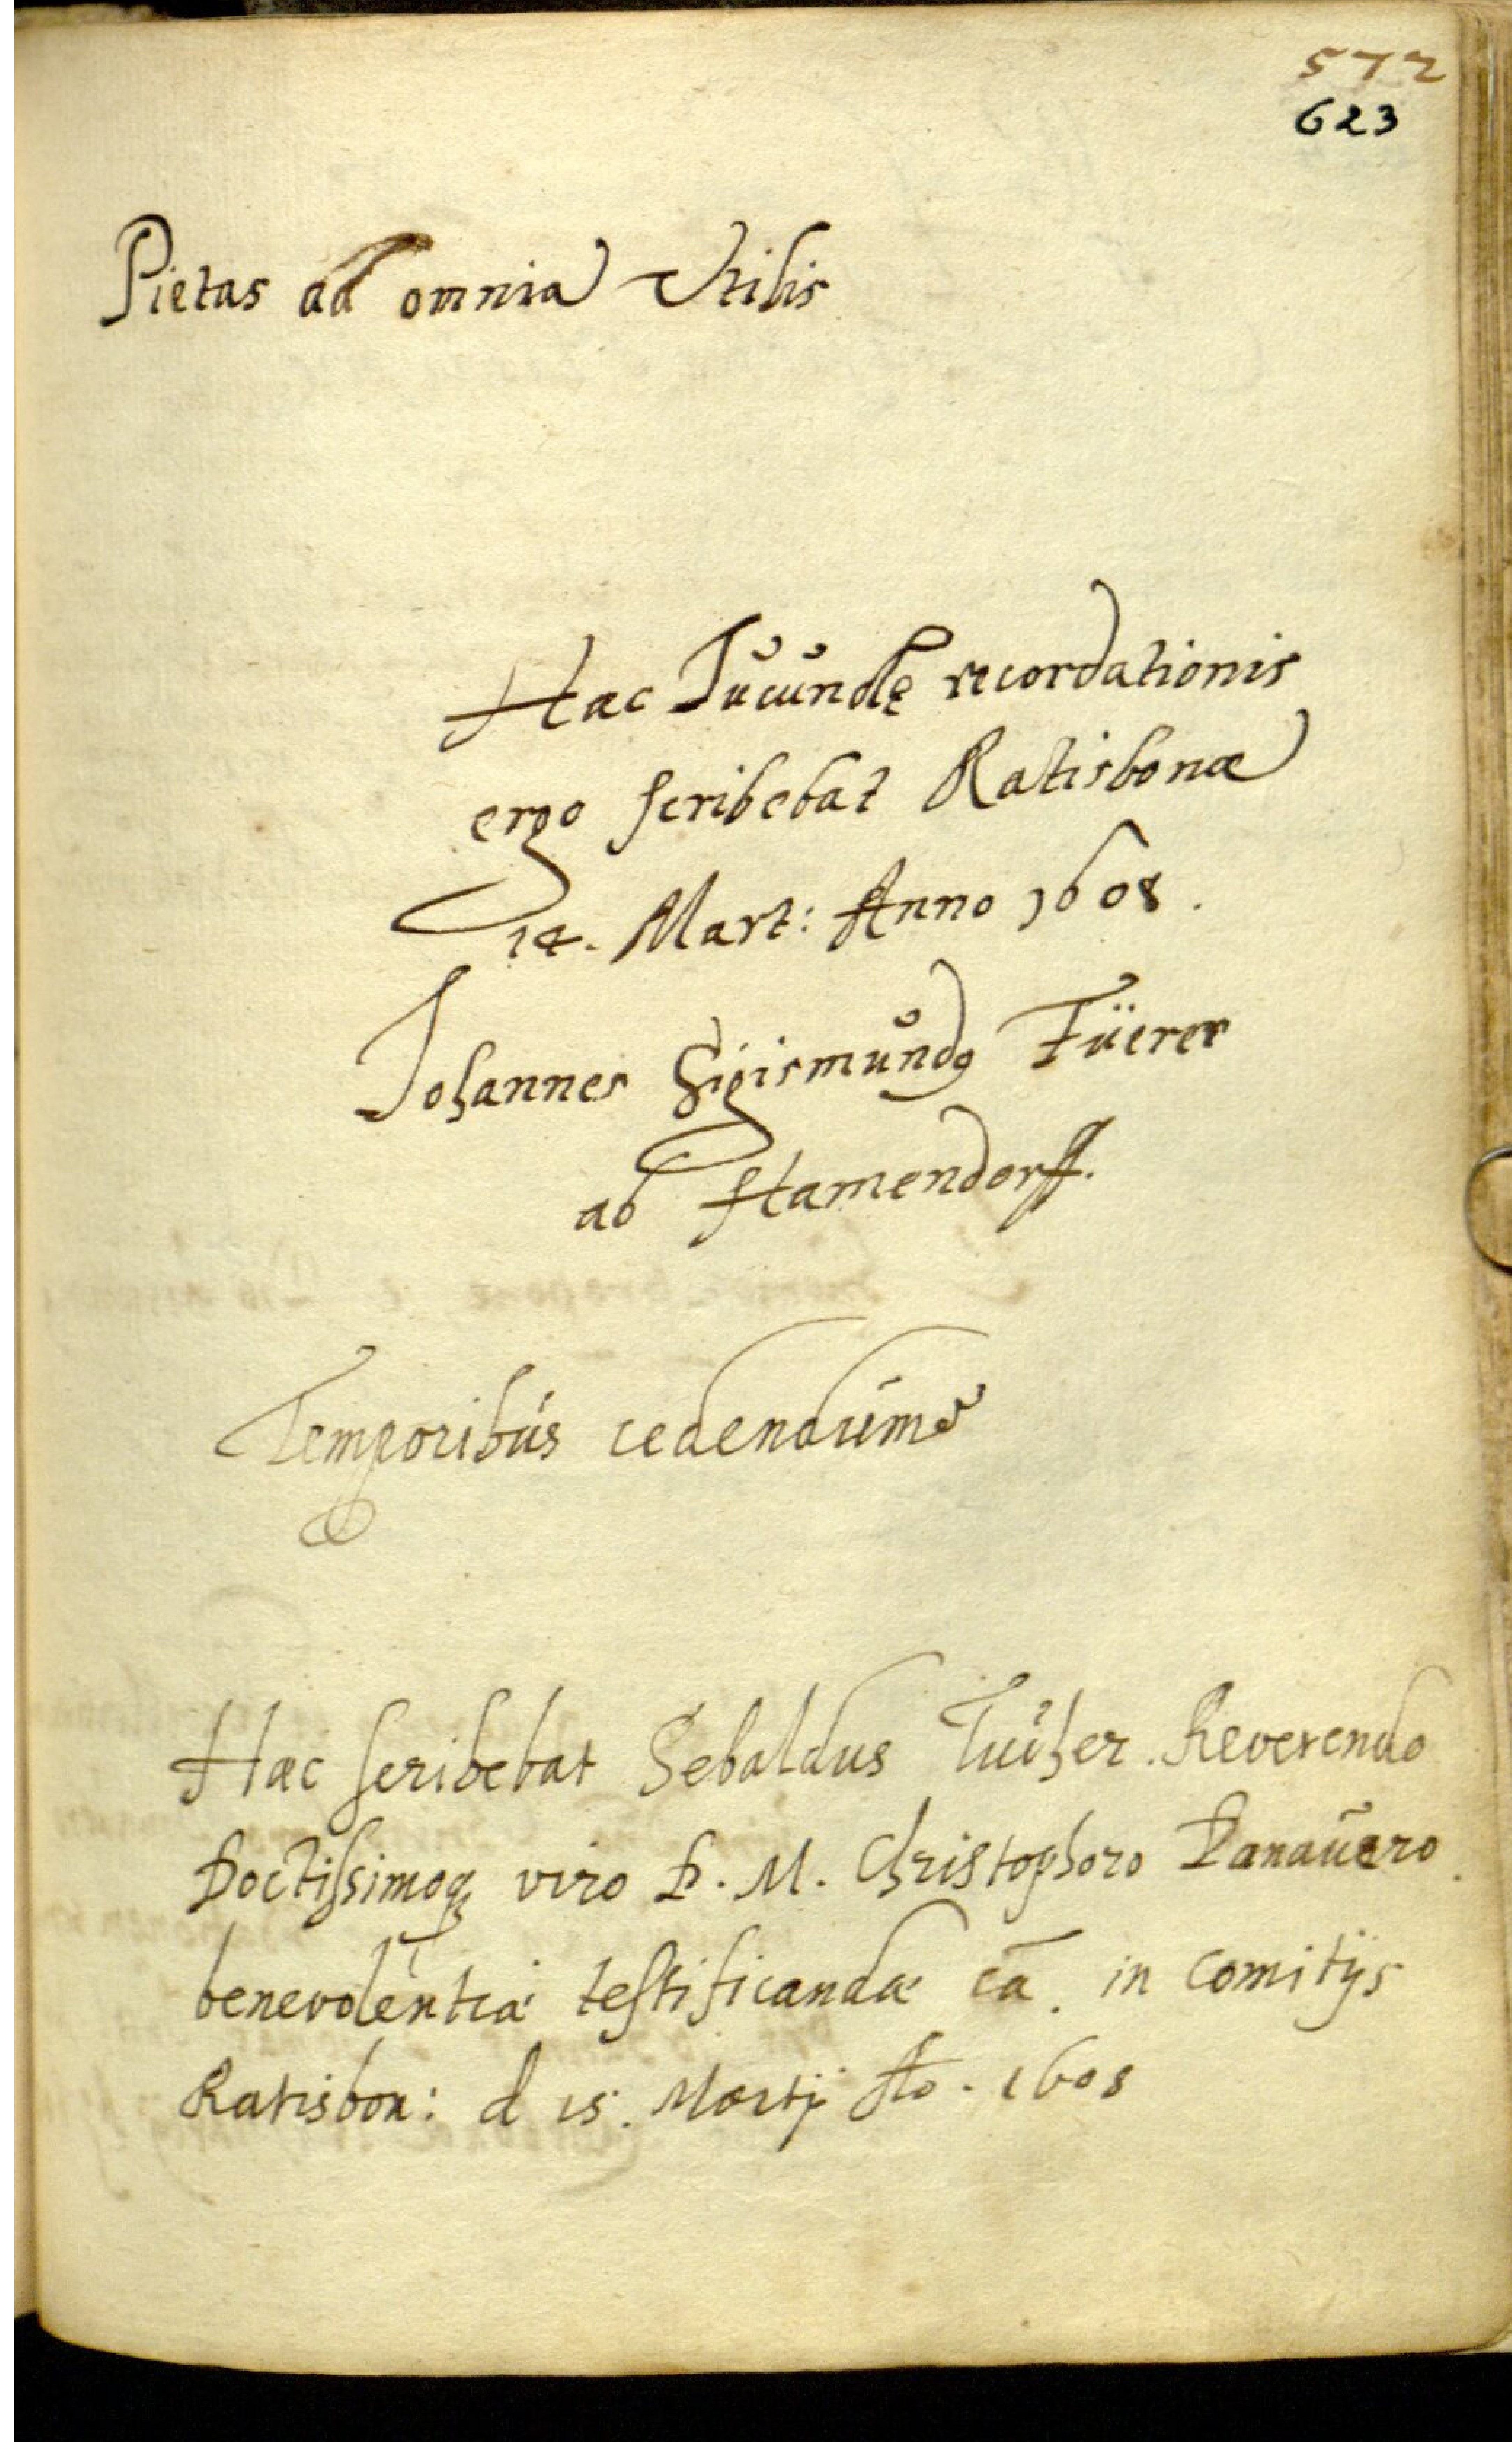 572
623
Pietas ad omnia Vtilis
Hæc Jucundę recordationis
ergo scribebat Ratisbonæ
14. Mart: Anno 1608.
Johannes Sigismundꝰ Füerer
ab Hamendorff.
Temporibus cedendum
Hæc scribebat Sebaldus Tucher Reverendo
Doctissimoqꝫ viro D. M. Christophoro Danauero
benevolentiæ testificandæ cā. in Comitijs
Ratisbon: d 15. Martij Ao. 1608